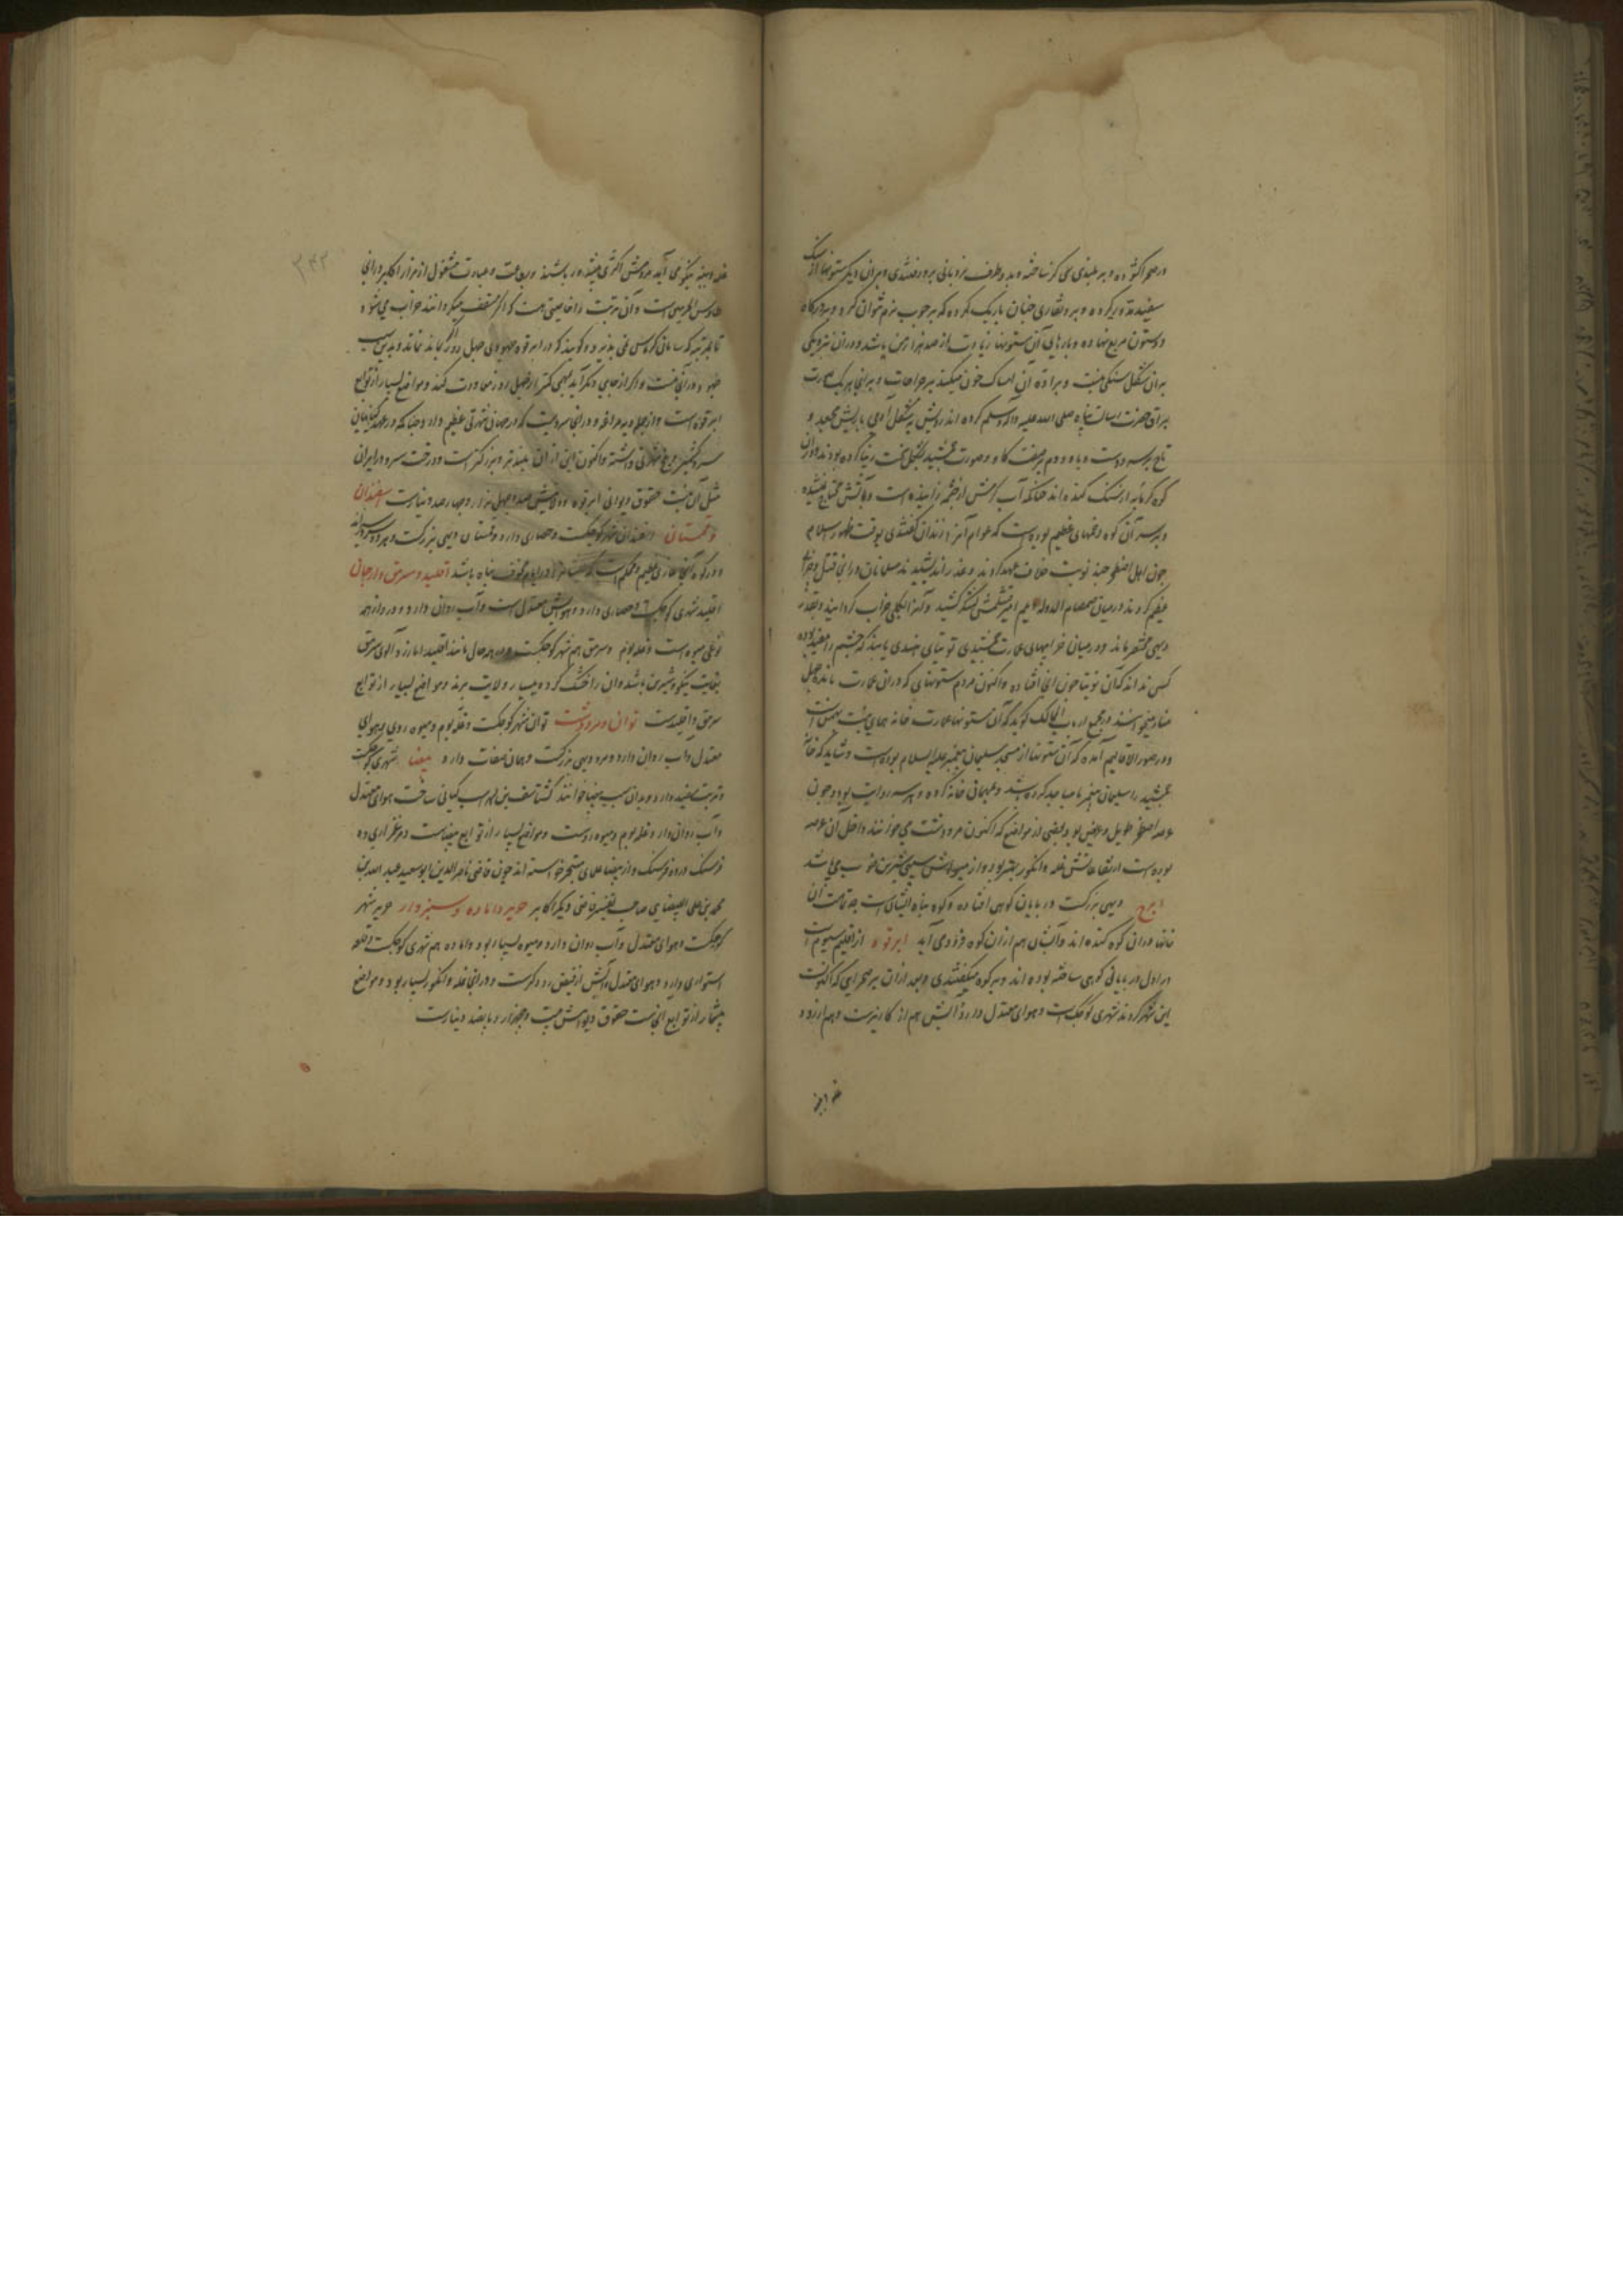 در صحرا کشوده و بر بلندی می کرسا خته و بدو طرف نردبانی بر و رفتندی و بران دیکر ستونها از سنک
سفید مدور کرده و برو نقاری چنان باریک کرده که بر چوب نرم نتوان کرد و بر درکاه
دو ستون مربع نهاده و بارهای آن ستونها زیادت از صد هزار من باشد و دران نزدیکی
بران شکل سنکی نیست و براده آن امساک خون میکند بر جراحات و برانجا
براق حضرت رسالت پناه صلی الله علیه و آله و سلم کرده اند رویش بشکل آدمی با ریش مجعد و
تاج بر سر و دست و پا و دم بر صفت کاو و صورت جمشید بشکل سخت زیبا کرده بودند و دران
کوه کرمابه از سنک کنده اند چنانکه آب کرمش از چشمه زاینده است و بآتش محتاج نمیشده
و بر سر آن کوه دخمهای عظیم بوده است که عوام آنرا زندان کفتندی بوقت ظهور اسلام
چون اهل اصطخر چند نوبت خلاف عهد کردند و غدر اندیشیدند مسلمانان در انجا قتل و خرابی
عظیم کردند در میان صمصام الدوله امیر قتلمش لشکر کشید و آنرا بکلی خراب کردانید و بقدر
دیهی مختصر ماند و در میان خرابیهای عمارت جمشیدی توتیای هندی یابند که چشم را مفید بود
کس نداند که آن توتیا چون انجا افتاده و اکنون مردم ستونهای که دران عمارت مانده چهل
منار میخوانند و در مجمع ارباب الممالک کوید که آن ستونها عمارت خانه همای بنت بهمن است
و در صور الاقالیم آمده که آن ستونها از مسجد سلیمان پیغمبر علیه السلام بوده است و شاید که خانه
جمشید را سلیمان پیغمبر با مساجد کرده باشد و همای خانه کرده و هر سه روایت بود و چون
عرصه اصطخر طویل و عریض بود بعضی از مواضع که اکنون مرودشت می خوانند داخل آن عرصه
بوده است ارتفاعاتش غله و انکور بهتر بود و از میوهاش سیب شیرین خوب می باشد
ابرج دیهی بزرکست در پایان کوهی افتاده و کوه پناه ایشان است چه تمامت آن
خانها دران کوه کنده اند و آبشان هم ازان کوه فرود می آید ابرقوه از اقلیم سیوم است
در اول در پایان کوهی ساخته بوده اند و بر کوه میکفتندی و بعد ازان بر صحرایی که اکنونست
این شهر کردند شهری کوچک است و هوای معتدل دارد و آبش هم از کاریزست و هم از رود
غله و پنبه
غله و پنبه نیکو می آید مردمش اکثر پیشه ور باشند و بطاعت و عبادت مشغول از مزار اکابر در انجا
طاوس الحرمین است و آن تربت را خاصیتی هست که اکر مسقف میکردانند خراب می شود
تا بمرتبه که سایبان کرباس نمی پذیرد و کویند که در ابرقوه جهودی چهل روز اکر بماند نماند و بدین سبب
جهود در آنجا نیست و اکر از جایی دیکر آید بمهمی کمتر از چهل روز معاودت کند و مواضع بسیار از توابع
ابرقوه است و از جمله دیه مراغه و در انجا سرویست که در جهان شهرتی عظیم دارد چنانکه در عهد کیانیان
سرو کشمر و بلخ شهرتی داشته و اکنون این ازان بلندتر و بزرکتر است و درخت سرو در ایران
مثل آن نیست حقوق دیوانی ابرقوه و ولایتش صد و چهل هزار و چهارصد دینارست اسفندان
و قهستان اسفندان شهر کوچکست و حصاری دارد و قهستان دیهی بزرکست و هر دو سردسیرند
و در کوه آنجا غاری عظیم و محکم است که در ایام خوف پناه باشد اقلید و سرمق و ارجان
اقلید شهری کوچک است و حصاری دارد و هوایش معتدل است و آب روان دارد و در و از همه
نوعی میوه است و غله بوم و سرمق هم شهر کوچکست و در همه حال مانند اقلید اما زرد آلوی سرمق
بغایت نیکو و شیرین باشد و آن را خشک کرده به بسیار ولایت برند و مواضع بسیار از توابع
سرمق و اقلیدست توان و مرودشت توان شهر کوچکست و غله بوم و میوه روی و هوای
معتدل و آب روان دارد و مرو دیهی بزرکست و همان صفات دارد بیضا شهری کوچکست
و تربت سفید دارد و بدان سبب بیضا خوانند کشتاسف بن لهراسب کیانی ساخت هوای معتدل
و آب روان دارد و غله بوم و میوه روست و مواضع بسیار از توابع بیضاست و مرغزاری ده
فرسنک در ده فرسنک و از بیضا علمای متبحر خواسته اند چون قاضی ناصر الدین ابوسعید عبد الله بن
محمد بن علی البیضاوی صاحب تفسیر قاضی و دیکر اکابر
کوچکست و هوای معتدل و آب روان دارد و میوه بسیار بود و اباده هم شهری کوچکست و قلعه
استواری دارد و هوای معتدل و آبش از فیض رود کرست و در انجا غله و انکور بسیار بود و مواضع
بیشمار از توابع آنجاست حقوق دیوانیش بیست و پنجهزار و پانصد دینارست
۳۴۳